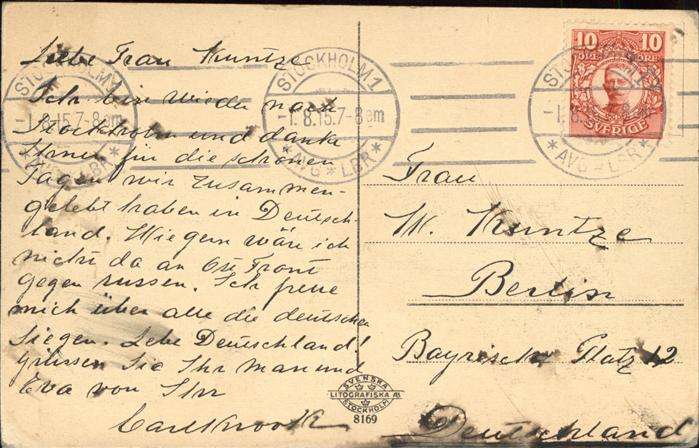 Liebe Frau Kuntze
Ich bin wieder nach
Stockholm und danke
Ihnen für die schönen
Tagen wir zusammen-
gelebt haben in Deutsch-
land. Wie gern wäre ich
nicht da an Ost Front
gegen russen. Ich freue
mich über alle die deutschen
Siegen. Lebe Deutschland!
grüssen Sie Ihr Man und
Eva von Ihr
STOCKHOLM 1
-1.8.15.7-8 em
* AVG * LBR *
STOCKHOLM 1
-1.8.15.7-8 em
* AVG * LBR *
10 10
ÖRE
SVERIGE
STOCKHOLM 1
-1.8.15.7-8 em
* AVG - LBR *
Frau
W. Kuntze
Berlin
Bayrische Platz 12
Deutschland
SVENSKA
LITOGRAFISKA AB
STOCKHOLM
8169